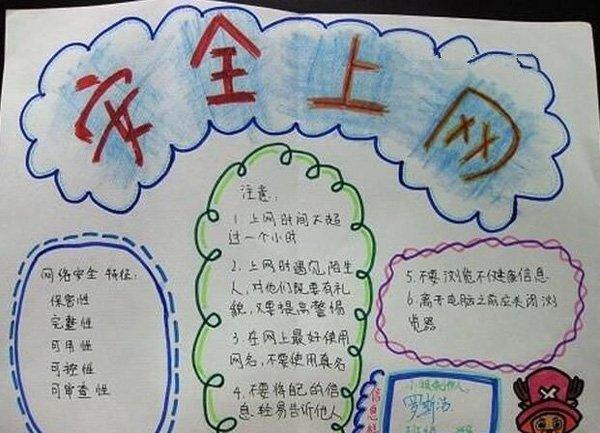 安全上网
网络安全特征:
保密性
完整性
可用性
可控性
可审查性
注意:
1. 上网时间不超
过一个小时
2. 上网时遇见陌生
人,对他们既要有礼
貌,又要提高警惕
3. 在网上最好使用
网名,不要使用真名
4. 不要将自己的信
息轻易告诉他人
5. 不要浏览不健康信息
6. 离开电脑之前应关闭浏
览器
信息
小报制作人: